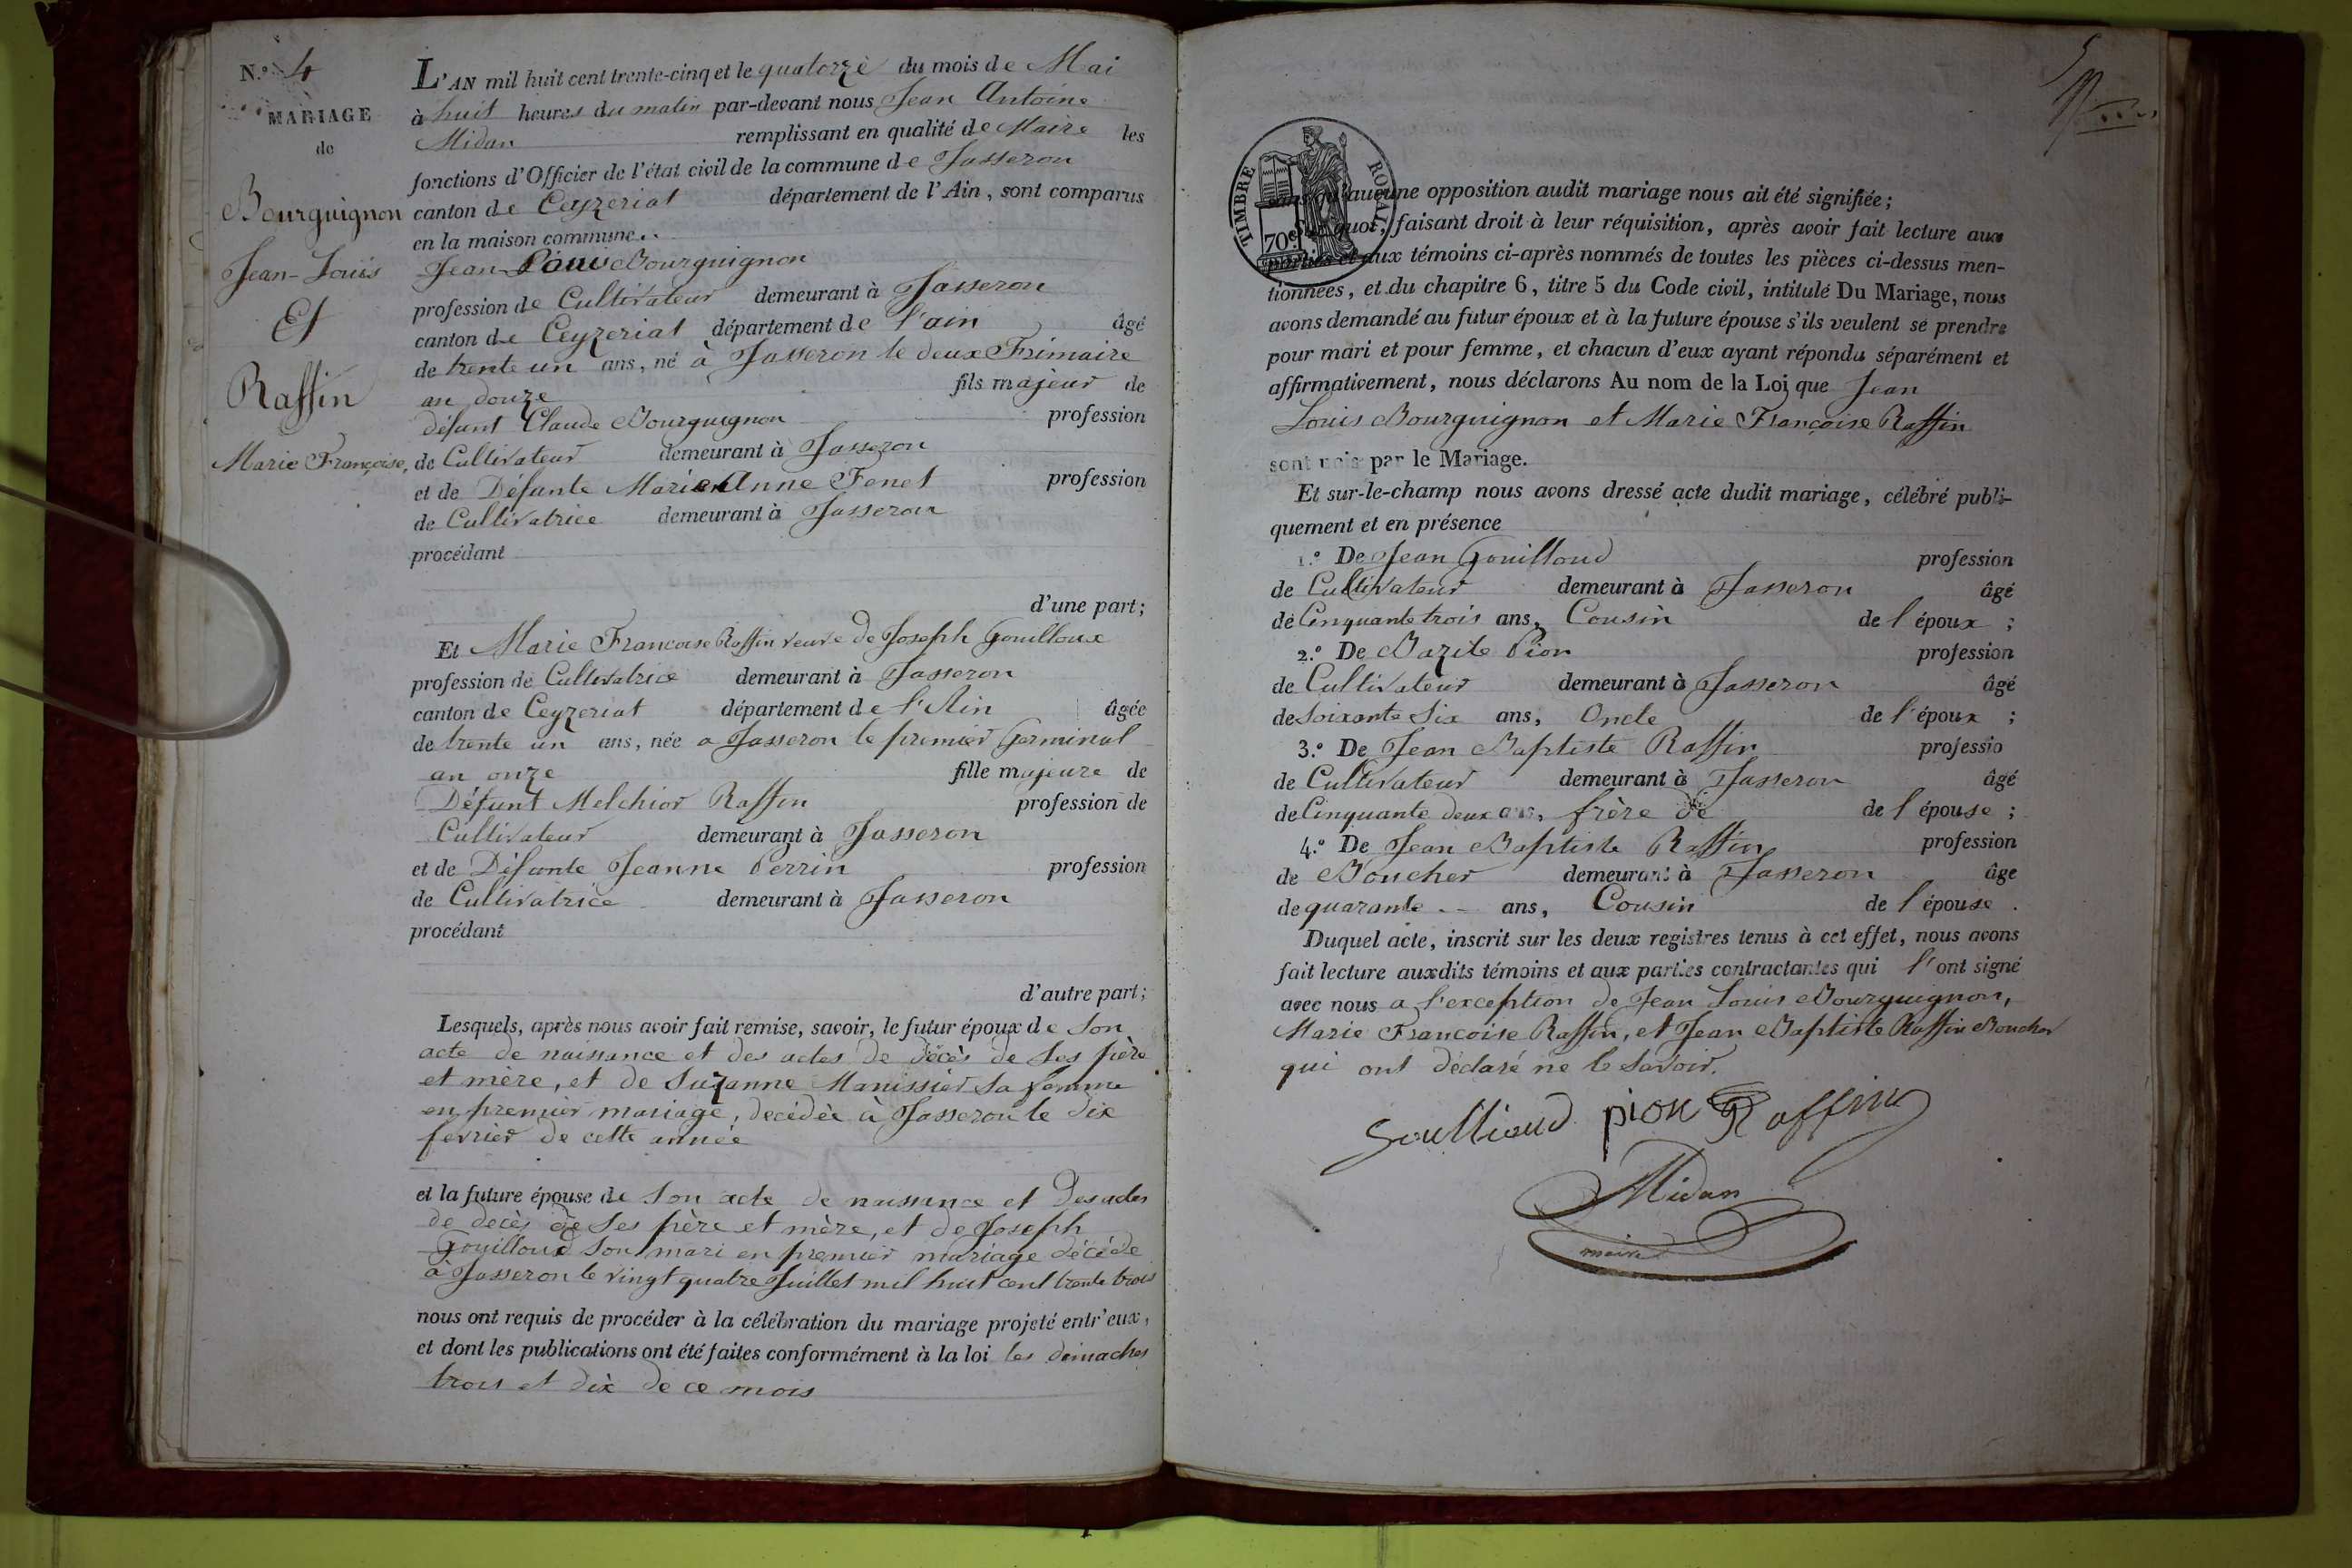 N.° 4
MARIAGE
de
Bourguignon
Jean-Louis
Et
Raffin
Marie Françoise,
L'AN mil huit cent trente-cinq et le quatorze du mois de Mai
à huit heures du matin par-devant nous Jean Antoine
Midan remplissant en qualité de Maire les
fonctions d'Officier de l'état civil de la commune de Jasseron
canton de Ceyzeriat département de l'Ain, sont comparus
en la maison commune..
Jean Louis Bourguignon
profession de Cultivateur demeurant à Jasseron
canton de Ceyzeriat département de l'ain âgé
de trente un ans, né à Jasseron le deux Frimaire
an douze fils majeur de
défunt Claude Bourguignon profession
de Cultivateur demeurant à Jasseron
et de Défunte Marie Anne Fenet profession
de Cultivatrice demeurant à Jasseron
procédant
d'une part;
Et Marie Francoise Raffin veuve de Joseph Gouilloux
profession de Cultivatrice demeurant à Jasseron
canton de Ceyzeriat département de l'Ain âgée
de trente un ans, née a Jasseron le premier Germinal
an onze fille majeure de
Défunt Melchior Raffin profession de
Cultivateur demeurant à Jasseron
et de Défunte Jeanne Perrin profession
de Cultivatrice demeurant à Jasseron
procédant
d'autre part;
Lesquels, après nous avoir fait remise, savoir, le futur époux de son
acte de naissance et des actes de décès de ses père
et mère, et de Suzanne Manissier sa femme
en premier mariage, decédée à Jasseron le dix
fevrier de cette année
et la future épouse de son acte de naissance et des actes
de decès de ses père et mère, et de Joseph
Gouilloud son mari en premier mariage décédé
à Jasseron le vingt quatre Juillet mil huit cent trente trois
nous ont requis de procéder à la célébration du mariage projeté entr'eux,
et dont les publications ont été faites conformément à la loi les dimaches
trois et dix de ce mois
5
TIMBRE ROYAL
70c
sans qu'aucune opposition audit mariage nous ait été signifiée;
Sur quoi, faisant droit à leur réquisition, après avoir fait lecture aux
parties et aux témoins ci-après nommés de toutes les pièces ci-dessus men-
tionnées, et du chapitre 6, titre 5 du Code civil, intitulé Du Mariage, nous
avons demandé au futur époux et à la future épouse s'ils veulent se prendre
pour mari et pour femme, et chacun d'eux ayant répondu séparément et
affirmativement, nous déclarons Au nom de la Loi que Jean
Louis Bourguignon et Marie Françoise Raffin
sont unis par le Mariage.
Et sur-le-champ nous avons dressé acte dudit mariage, célébré publi-
quement et en présence
1.° De Jean Gouilloud profession
de Cultivateur demeurant à Jasseron âgé
de Cinquante trois ans, Cousin de l'époux ;
2.° De Bazile Pion profession
de Cultivateur demeurant à Jasseron âgé
de soixante six ans, Oncle de l'époux ;
3.° De Jean Baptiste Raffin professio
de Cultivateur demeurant à Jasseron âgé
de Cinquante deux ans, frère de de l'épouse ;
4.° De Jean Baptiste Raffin profession
de Boucher demeurant à Jasseron âge
de quarante ans, Cousin de l'épouse .
Duquel acte, inscrit sur les deux registres tenus à cet effet, nous avons
fait lecture auxdits témoins et aux parties contractantes qui l'ont signé
avec nous a l'exception de Jean Louis Bourguignon,
Marie Francoise Raffin, et Jean Baptiste Raffin Boucher
qui ont déclaré ne le savoir.
Goullioud pion Raffin
Midan
maire